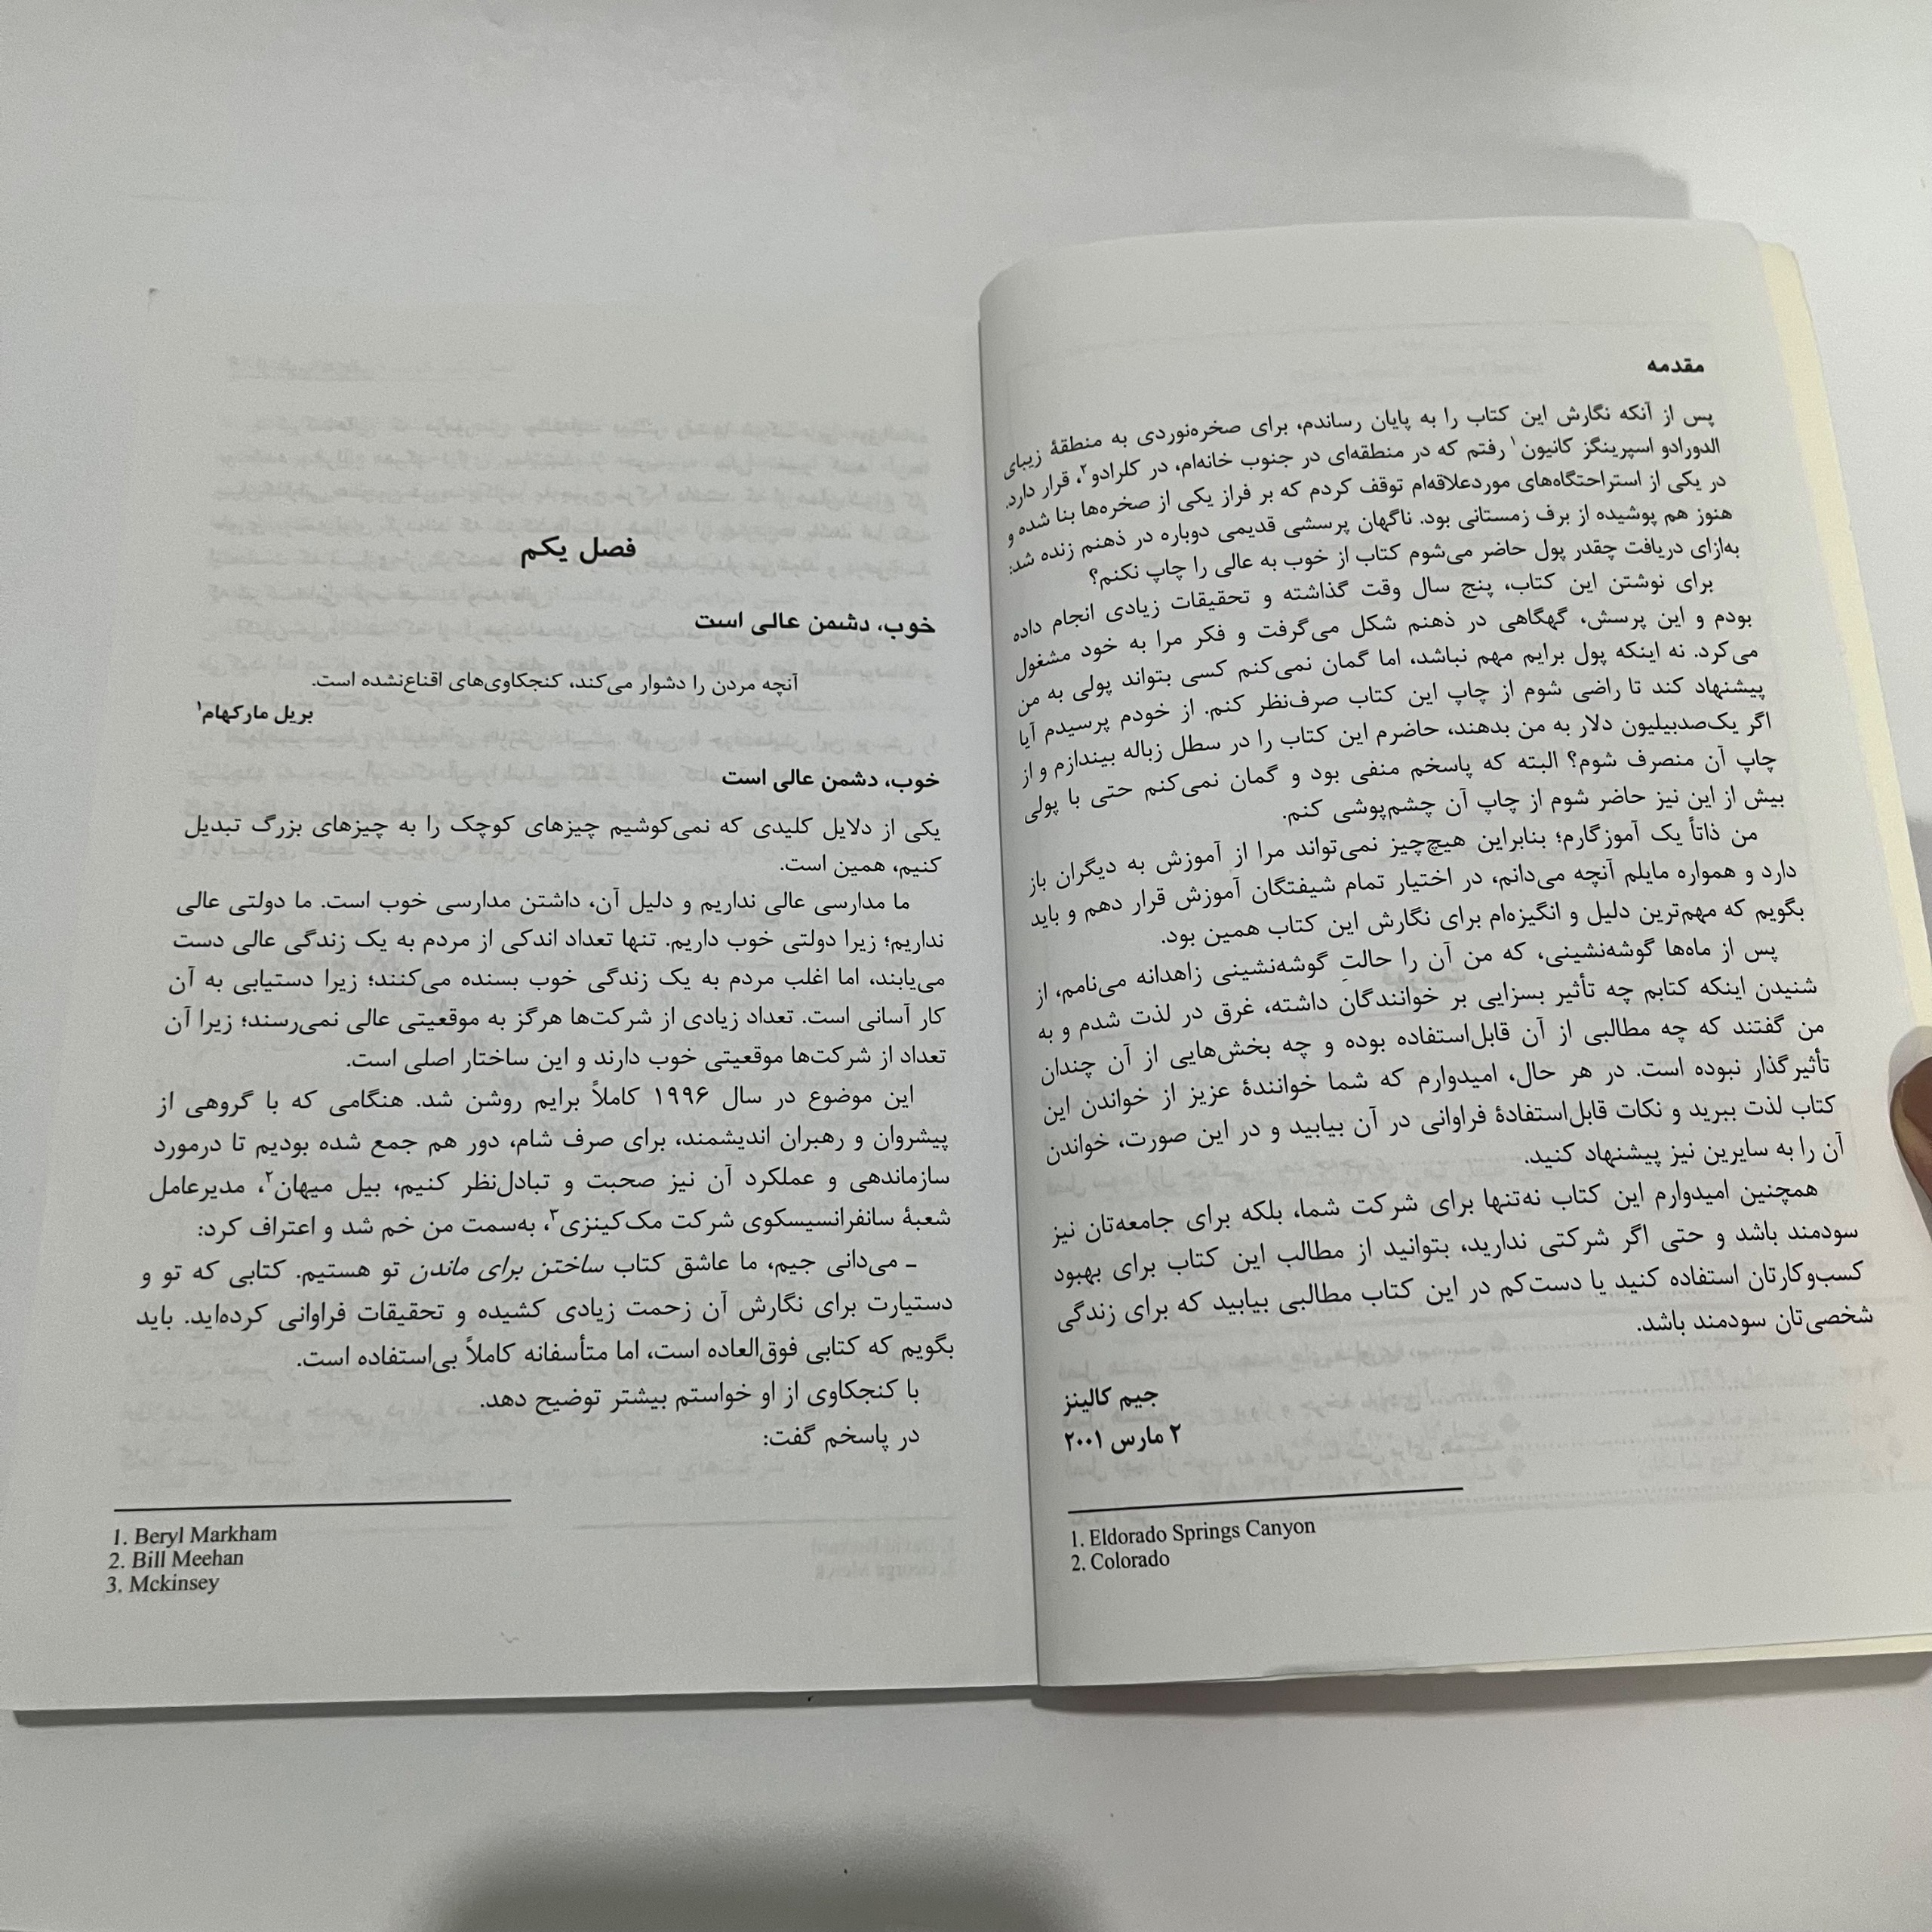 مقدمه
پس از آنکه نگارش این کتاب را به پایان رساندم، برای صخره‌نوردی به منطقهٔ زیبای
الدورادو اسپرینگز کانیون۱ رفتم که در منطقه‌ای در جنوب خانه‌ام، در کلرادو۲، قرار دارد.
در یکی از استراحتگاه‌های موردعلاقه‌ام توقف کردم که بر فراز یکی از صخره‌ها بنا شده و
هنوز هم پوشیده از برف زمستانی بود. ناگهان پرسشی قدیمی دوباره در ذهنم زنده شد:
به‌ازای دریافت چقدر پول حاضر می‌شوم کتاب از خوب به عالی را چاپ نکنم؟
برای نوشتن این کتاب، پنج سال وقت گذاشته و تحقیقات زیادی انجام داده
بودم و این پرسش، گهگاهی در ذهنم شکل می‌گرفت و فکر مرا به خود مشغول
می‌کرد. نه اینکه پول برایم مهم نباشد، اما گمان نمی‌کنم کسی بتواند پولی به من
پیشنهاد کند تا راضی شوم از چاپ این کتاب صرف‌نظر کنم. از خودم پرسیدم آیا
اگر یک‌صدبیلیون دلار به من بدهند، حاضرم این کتاب را در سطل زباله بیندازم و از
چاپ آن منصرف شوم؟ البته که پاسخم منفی بود و گمان نمی‌کنم حتی با پولی
بیش از این نیز حاضر شوم از چاپ آن چشم‌پوشی کنم.
من ذاتاً یک آموزگارم؛ بنابراین هیچ‌چیز نمی‌تواند مرا از آموزش به دیگران باز
دارد و همواره مایلم آنچه می‌دانم، در اختیار تمام شیفتگان آموزش قرار دهم و باید
بگویم که مهم‌ترین دلیل و انگیزه‌ام برای نگارش این کتاب همین بود.
پس از ماه‌ها گوشه‌نشینی، که من آن را حالتِ گوشه‌نشینی زاهدانه می‌نامم، از
شنیدن اینکه کتابم چه تأثیر بسزایی بر خوانندگان داشته، غرق در لذت شدم و به
من گفتند که چه مطالبی از آن قابل‌استفاده بوده و چه بخش‌هایی از آن چندان
تأثیرگذار نبوده است. در هر حال، امیدوارم که شما خوانندهٔ عزیز از خواندن این
کتاب لذت ببرید و نکات قابل‌استفادهٔ فراوانی در آن بیابید و در این صورت، خواندن
آن را به سایرین نیز پیشنهاد کنید.
همچنین امیدوارم این کتاب نه‌تنها برای شرکت شما، بلکه برای جامعه‌تان نیز
سودمند باشد و حتی اگر شرکتی ندارید، بتوانید از مطالب این کتاب برای بهبود
کسب‌وکارتان استفاده کنید یا دست‌کم در این کتاب مطالبی بیابید که برای زندگی
شخصی‌تان سودمند باشد.
جیم کالینز
۲ مارس ۲۰۰۱
1. Eldorado Springs Canyon
2. Colorado
فصل یکم
خوب، دشمن عالی است
آنچه مردن را دشوار می‌کند، کنجکاوی‌های اقناع‌نشده است.
بریل مارکهام۱
خوب، دشمن عالی است
یکی از دلایل کلیدی که نمی‌کوشیم چیزهای کوچک را به چیزهای بزرگ تبدیل
کنیم، همین است.
ما مدارسی عالی نداریم و دلیل آن، داشتن مدارسی خوب است. ما دولتی عالی
نداریم؛ زیرا دولتی خوب داریم. تنها تعداد اندکی از مردم به یک زندگی عالی دست
می‌یابند، اما اغلب مردم به یک زندگی خوب بسنده می‌کنند؛ زیرا دستیابی به آن
کار آسانی است. تعداد زیادی از شرکت‌ها هرگز به موقعیتی عالی نمی‌رسند؛ زیرا آن
تعداد از شرکت‌ها موقعیتی خوب دارند و این ساختار اصلی است.
این موضوع در سال ۱۹۹۶ کاملاً برایم روشن شد. هنگامی که با گروهی از
پیشروان و رهبران اندیشمند، برای صرف شام، دور هم جمع شده بودیم تا درمورد
سازماندهی و عملکرد آن نیز صحبت و تبادل‌نظر کنیم، بیل میهان۲، مدیرعامل
شعبهٔ سانفرانسیسکوی شرکت مک‌کینزی۳، به‌سمت من خم شد و اعتراف کرد:
ـ می‌دانی جیم، ما عاشق کتاب ساختن برای ماندن تو هستیم. کتابی که تو و
دستیارت برای نگارش آن زحمت زیادی کشیده و تحقیقات فراوانی کرده‌اید. باید
بگویم که کتابی فوق‌العاده است، اما متأسفانه کاملاً بی‌استفاده است.
با کنجکاوی از او خواستم بیشتر توضیح دهد.
در پاسخم گفت:
1. Beryl Markham
2. Bill Meehan
3. Mckinsey